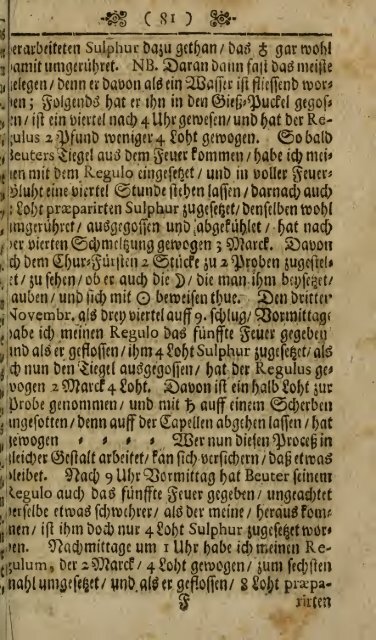 ( 81 )
erarbeiteten Sulphur dazu gethan / das ♁ gar wohl
damit umgerühret. NB. Daran dann fast das meiste
gelegen / denn er davon als ein Wasser ist fliessend wor-
den; Folgends hat er ihn in den Gieß-Puckel gegos-
en / ist ein viertel nach 4 Uhr gewesen / und hat der Re-
gulus 2 Pfund weniger 4 Loht gewogen. So bald
Beuters Tiegel aus dem Feuer kommen / habe ich mei-
en mit dem Regulo eingesetzet / und in voller Feuer-
Gluht eine viertel Stunde stehen lassen / darnach auch
Loht præparirten Sulphur zugesetzet / denselben wohl
umgerühret / ausgegossen und abgekühlet / hat nach
der vierten Schmeltzung gewogen 3 Marck. Davon
ich dem Chur-Fürsten 2 Stücke zu 2 Proben zugestel-
et / zu sehen / ob er auch die ☽ / die man ihm beysetzet /
rauben / und sich mit ☉ beweisen thue. Den dritten
Novembr. als drey viertel auff 9. schlug / Vormittage
habe ich meinen Regulo das fünffte Feuer gegeben
und als er geflossen / ihm 4 Loht Sulphur zugesetzet / als
ich nun den Tiegel ausgegossen / hat der Regulus ge-
wogen 2 Marck 4 Loht. Davon ist ein halb Loht zur
Probe genommen / und mit ♄ auff einem Scherben
angesotten / denn auff der Capellen abgehen lassen / hat
gewogen = = = = Wer nun diesen Proceß in
gleicher Gestalt arbeitet / kan sich versichern / daß etwas
bleibet. Nach 9 Uhr Vormittag hat Beuter seinem
Regulo auch das fünffte Feuer gegeben / ungeachtet
derselbe etwas schwehrer / als der meine / heraus kom-
men / ist ihm doch nur 4 Loht Sulphur zugesetzet wor-
den. Nachmittage um 1 Uhr habe ich meinen Re-
gulum, der 2 Marck / 4 Loht gewogen / zum sechsten
mahl umgesetzet / und als er geflossen / 8 Loht præpa-
F rirten